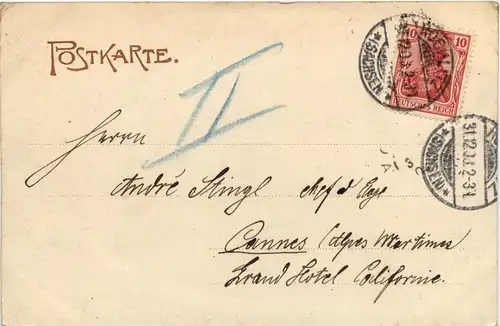 POSTKARTE.
II
10 10
DEUTSCHES REICH
*(SACHSEN)*
31.12.
2-3N.
*(SACHSEN)*
Herrn
André Stingl chef d'Etage
Cannes (Alpes Maritimes
Grand Hotel Californie.